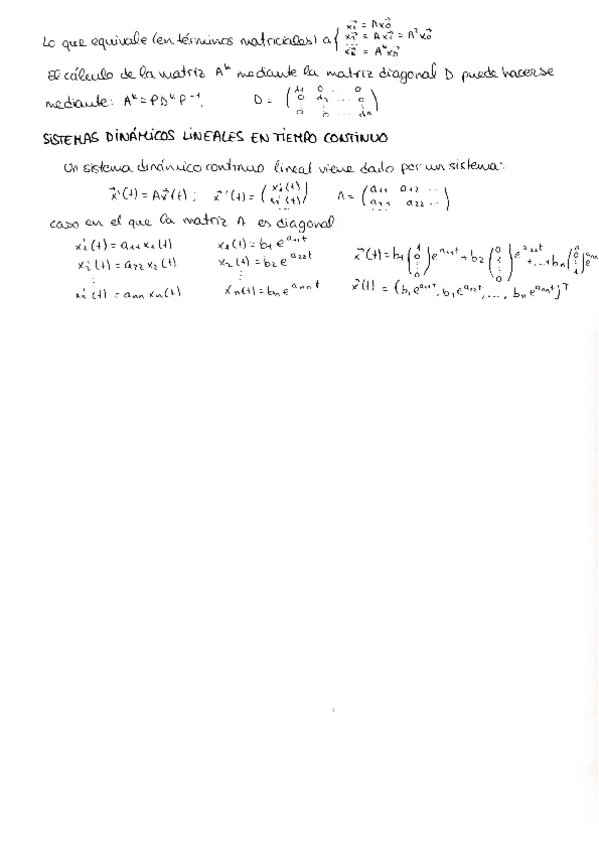 Lo que equivale (en términos matriciales) a { x₁⃗ = Ax₀⃗
x₂⃗ = Ax₁⃗ = A²x₀⃗
xₖ⃗ = Aᵏx₀⃗
El cálculo de la matriz Aᵏ mediante la matriz diagonal D puede hacerse
mediante: Aᵏ = PDᵏP⁻¹. D = (d₁ 0 ... 0 / 0 d₂ ... 0 / 0 0 ... dₙ)
SISTEMAS DINÁMICOS LINEALES EN TIEMPO CONTINUO
Un sistema dinámico continuo lineal viene dado por un sistema:
x⃗'(t) = Ax⃗(t); x⃗'(t) = (x₁'(t) / x₂'(t) / ...) A = (a₁₁ a₁₂ ... / a₂₁ a₂₂ ... / ...)
caso en el que la matriz A es diagonal:
x₁'(t) = a₁₁x₁(t) x₁(t) = b₁e^a₁₁t x⃗(t) = b₁(1 0 ⋮ 0)e^a₁₁t + b₂(0 1 ⋮ 0)e^a₂₂t + ... + bₙ(0 0 ⋮ 1)e^aₙₙ
x₂'(t) = a₂₂x₂(t) x₂(t) = b₂e^a₂₂t
⋮ ⋮
xₙ'(t) = aₙₙxₙ(t) xₙ(t) = bₙe^aₙₙt x⃗(t) = (b₁e^a₁₁t, b₁e^a₂₂t, ..., bₙe^aₙₙt)ᵀ